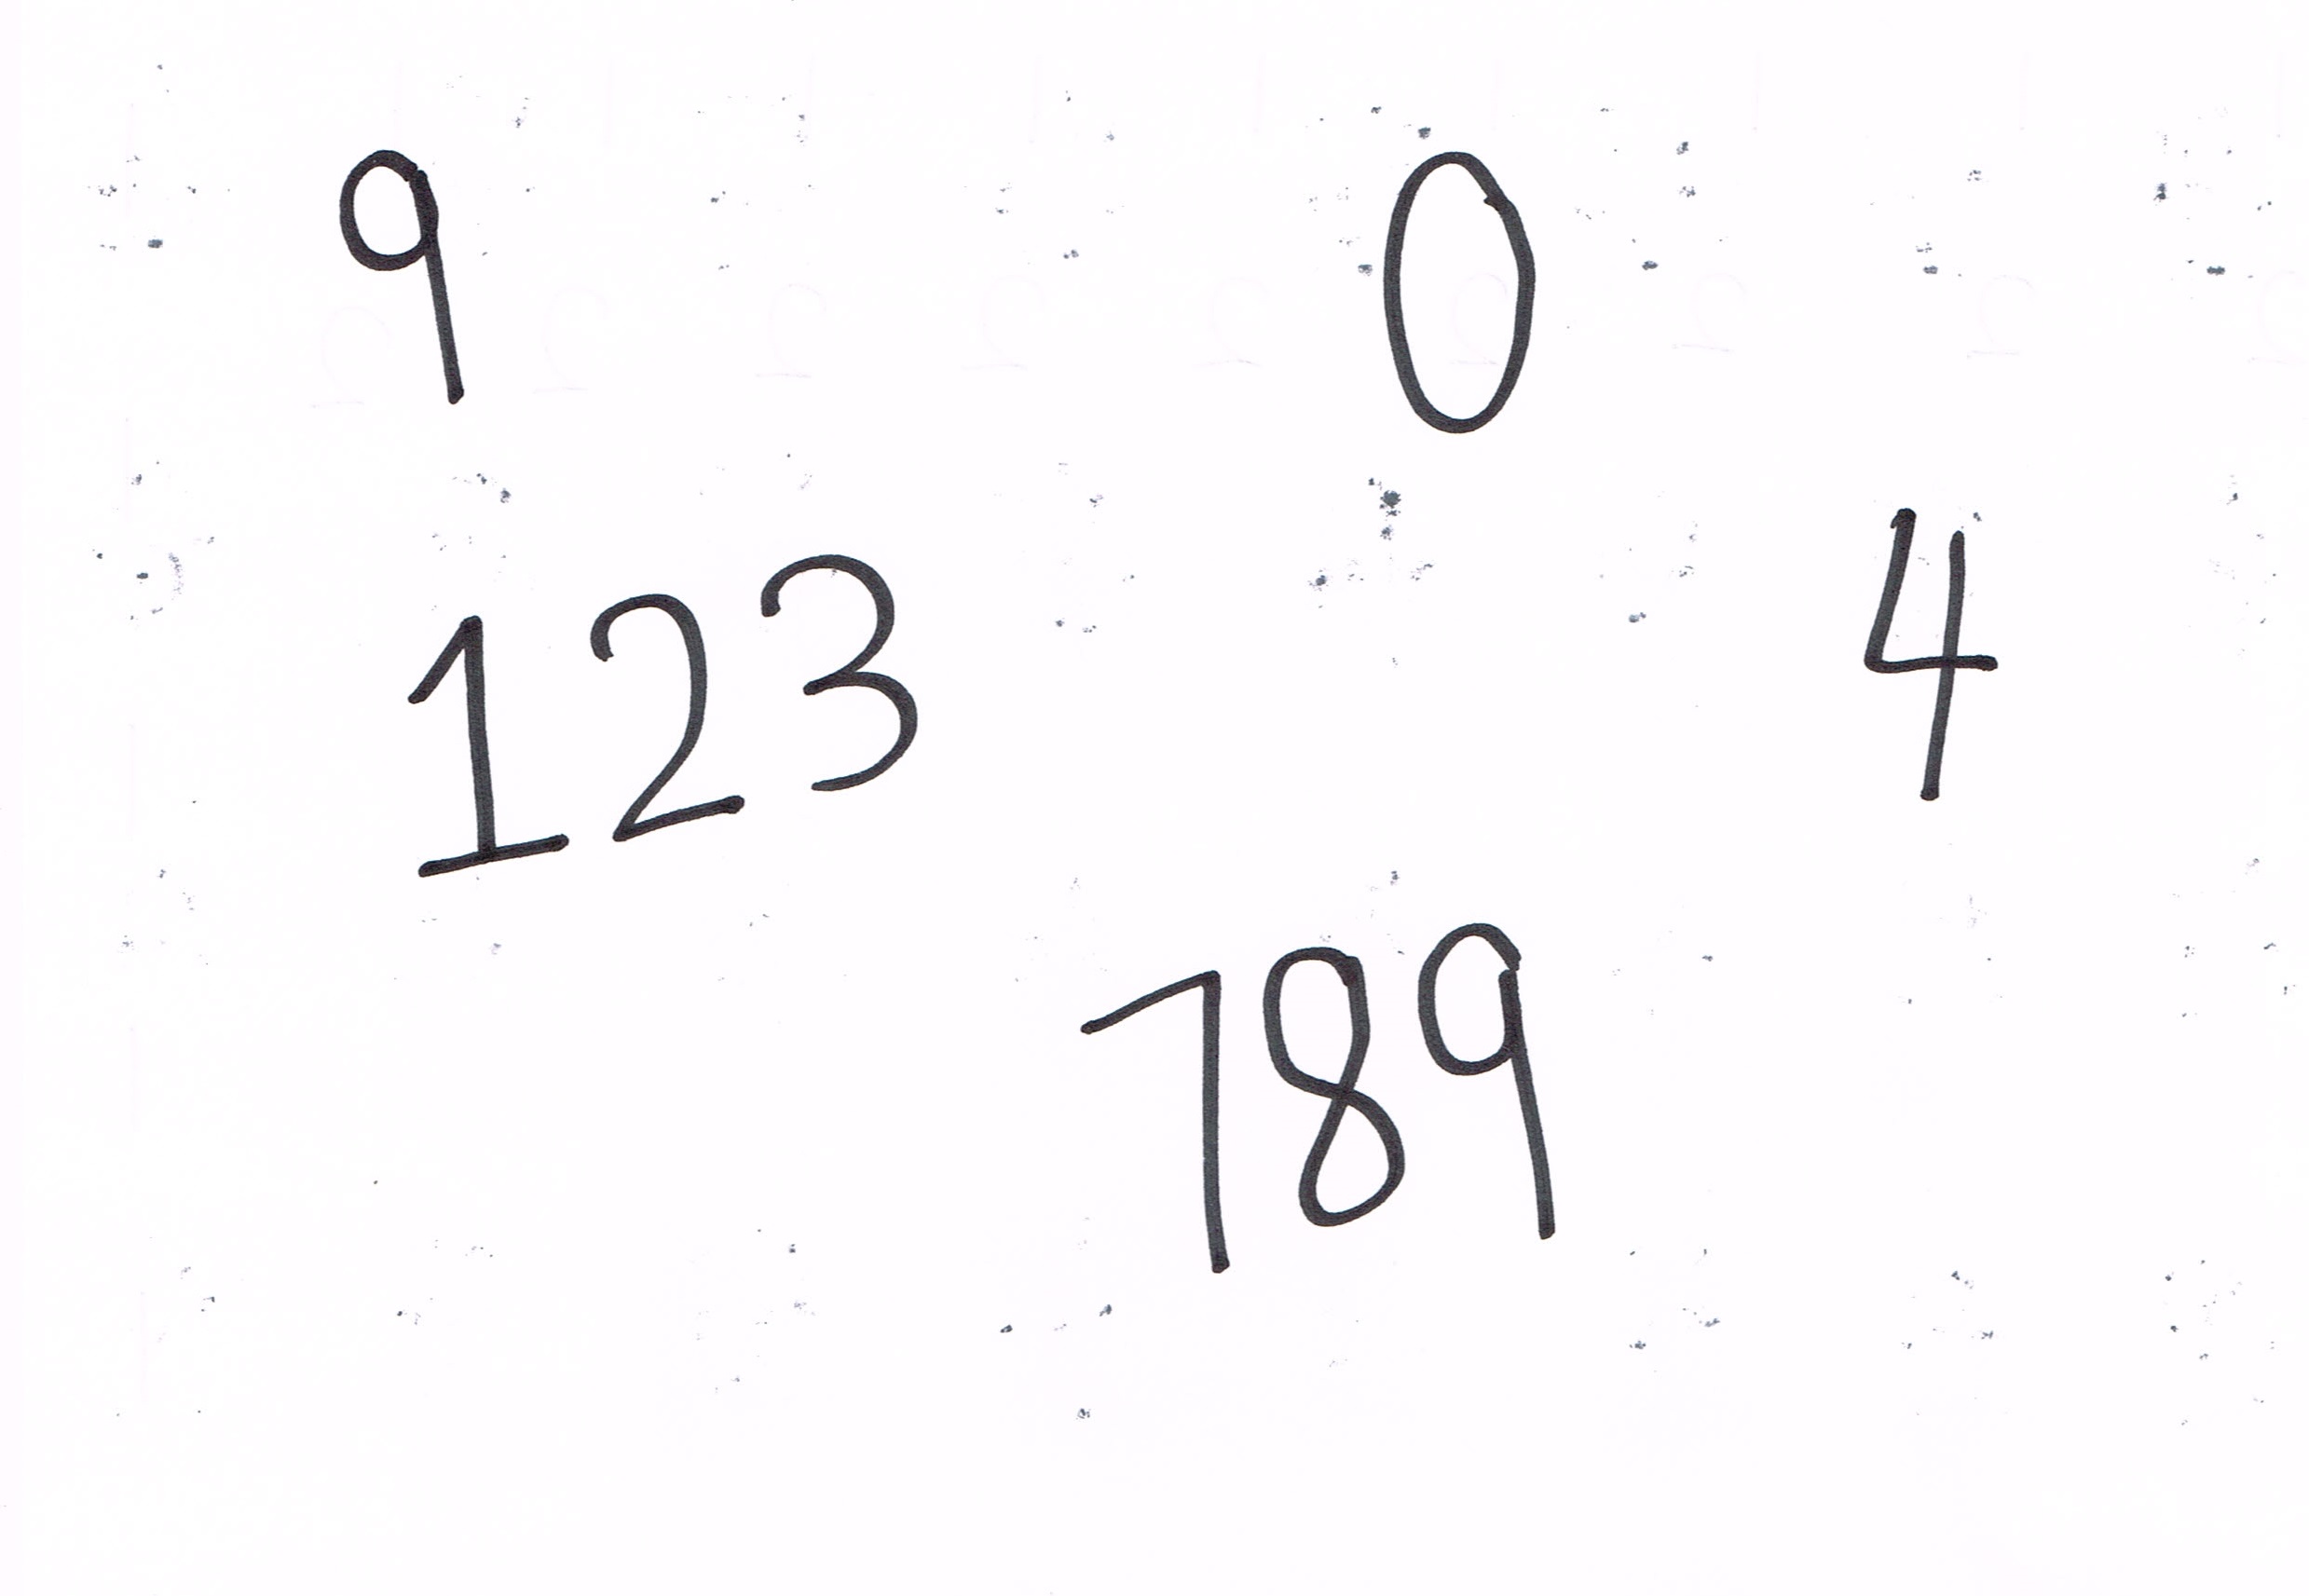 9 0
123 4
789